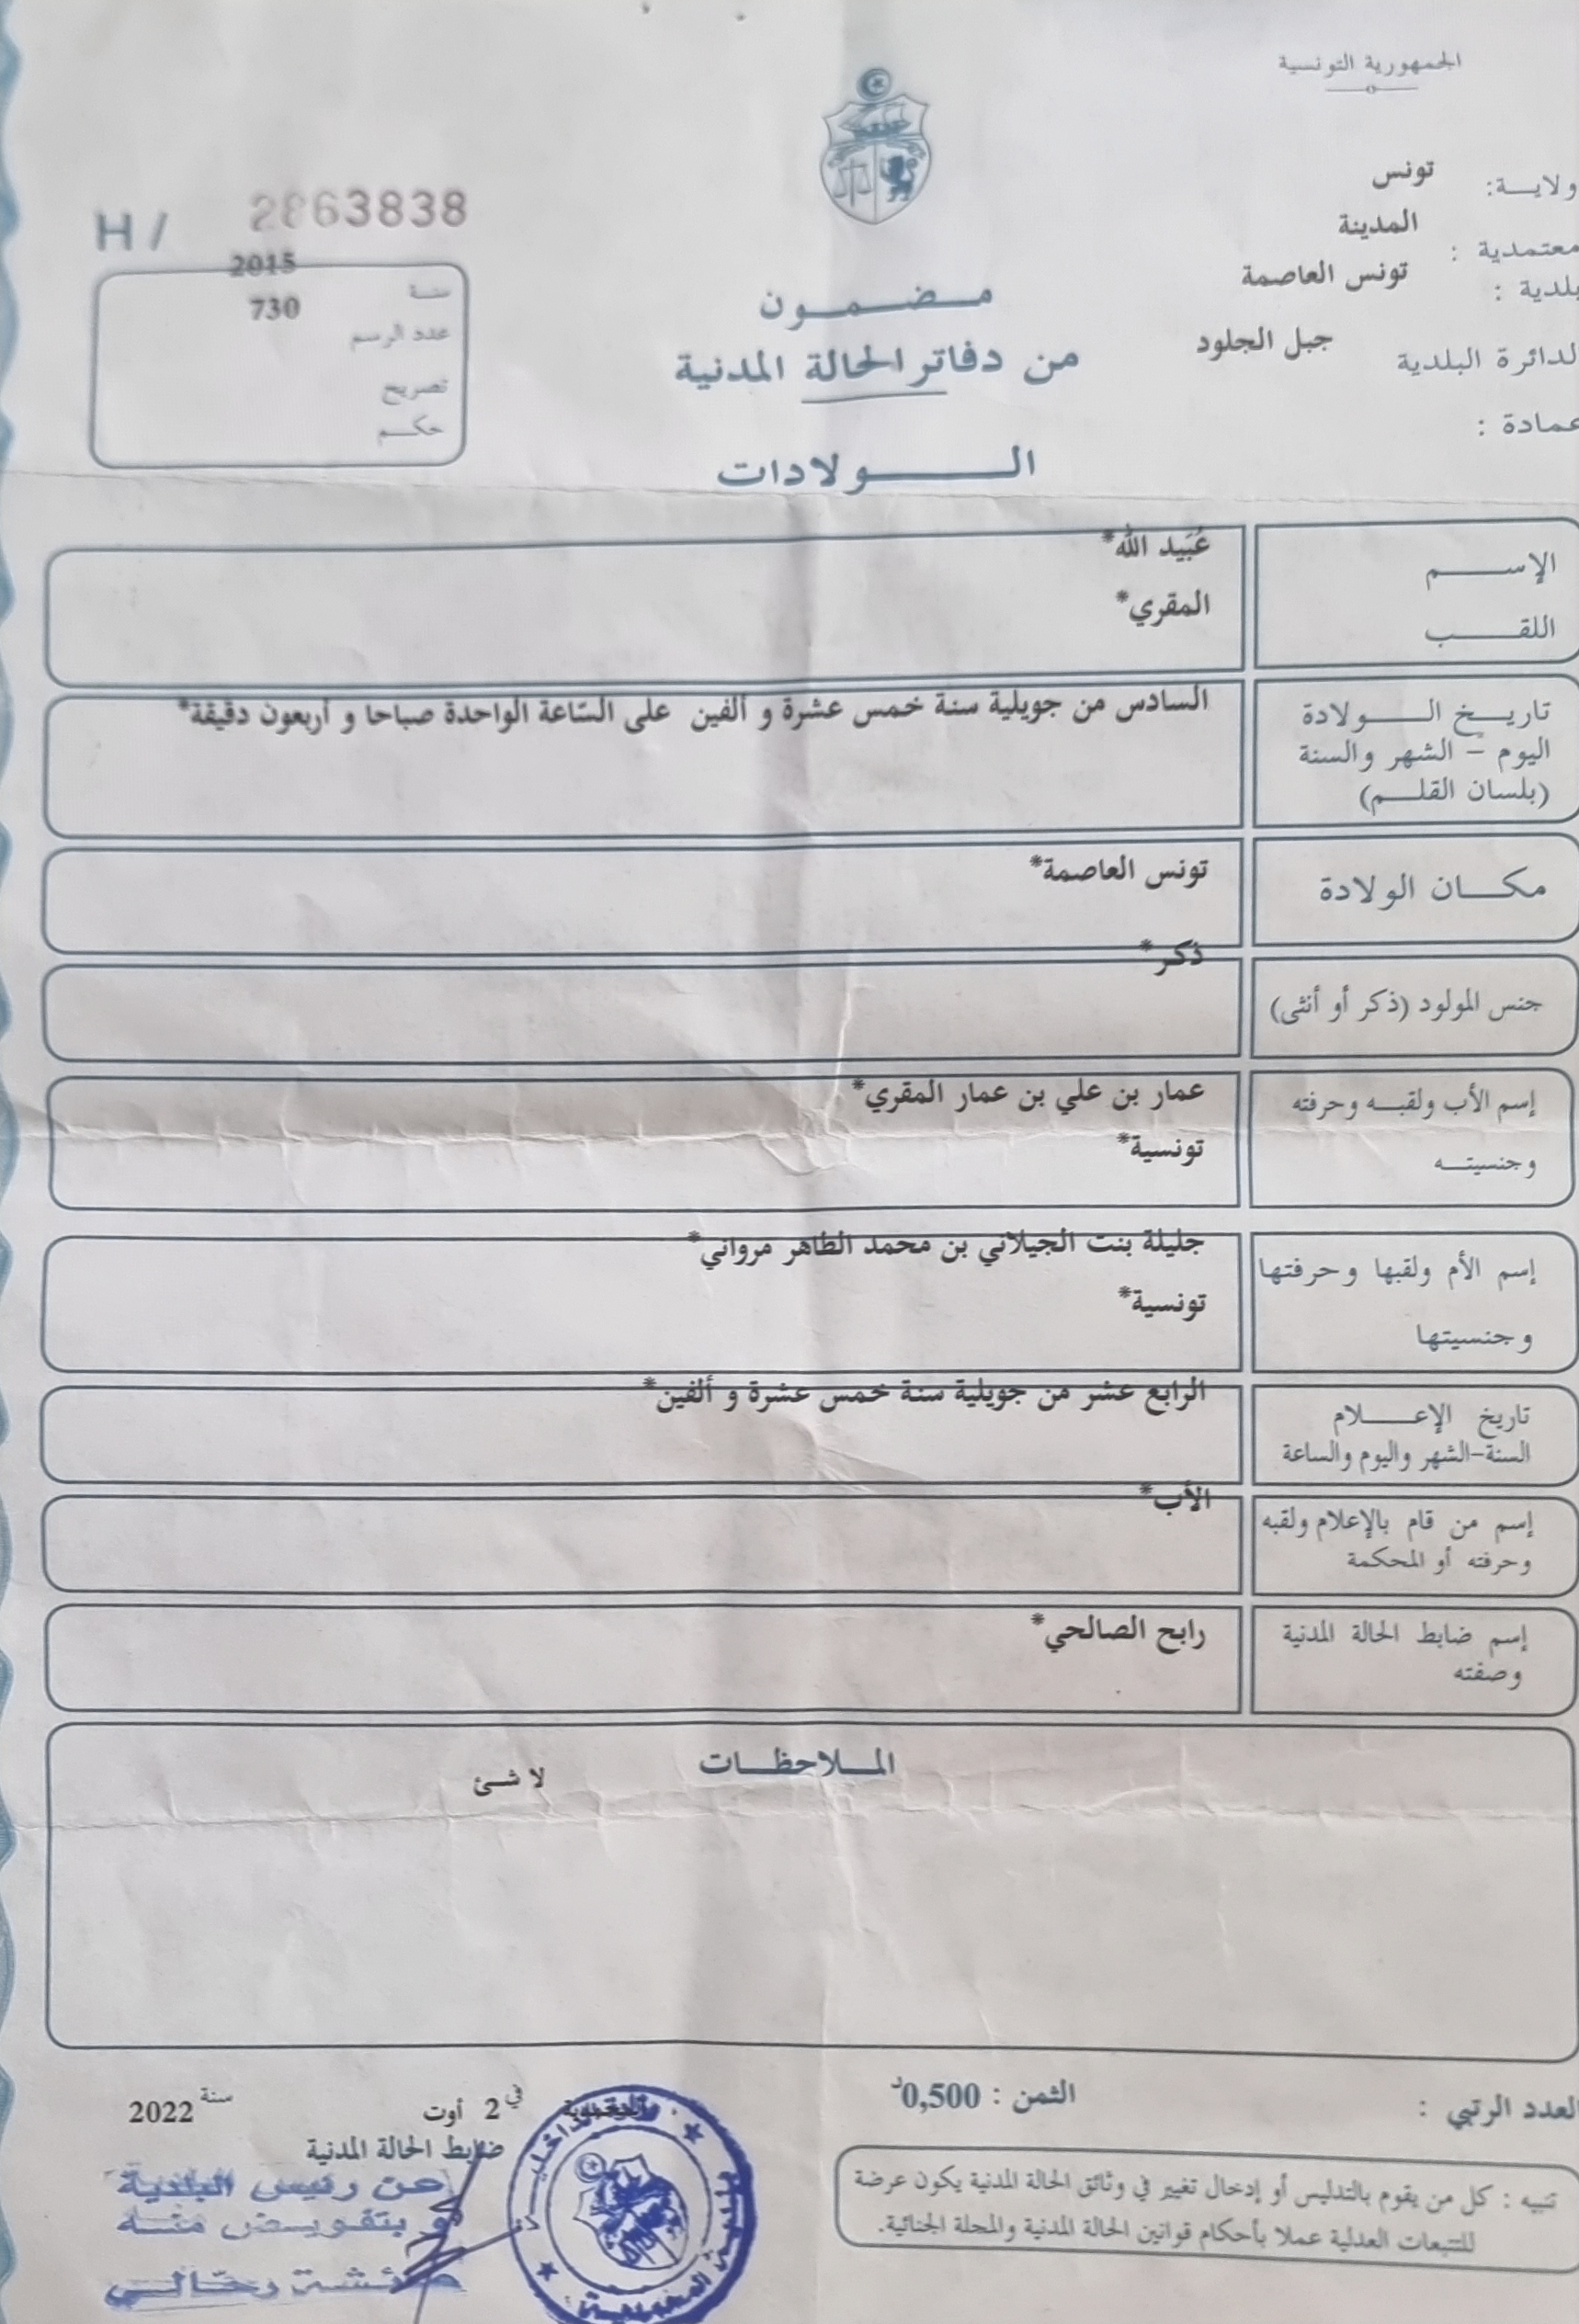 الجمهورية التونسية
ولايـــة: تونس
معتمدية : المدينة
بلدية : تونس العاصمة
لدائرة البلدية جبل الجلود
عمادة :
H / 2863838
سنـة 2015
عدد الرسم 730
تصريح
حكـــم
مـضـمـون
من دفاتر الحالة المدنية
الـــولادات
الإســـــم عُبَيد الله*
اللقـــــب المقري*
تاريـــخ الــــولادة السادس من جويلية سنة خمس عشرة و ألفين على السّاعة الواحدة صباحا و أربعون دقيقة*
اليوم – الشهر والسنة
(بلسان القلــم)
مكـــان الولادة تونس العاصمة*
جنس المولود (ذكر أو أنثى) ذكر*
إسم الأب ولقبـــه وحرفته عمار بن علي بن عمار المقري*
وجنسيتـــه تونسية*
إسم الأم ولقبها وحرفتها جليلة بنت الجيلاني بن محمد الطاهر مرواني*
وجنسيتها تونسية*
تاريخ الإعــــلام الرابع عشر من جويلية سنة خمس عشرة و ألفين*
السنة-الشهر واليوم والساعة
إسم من قام بالإعلام ولقبه الأب*
وحرفته أو المحكمة
إسم ضابط الحالة المدنية رابح الصالحي*
وصفته
المــلاحظــات
لا شـئ
العدد الرتبي :
الثمن : 0,500د
في 2 أوت سنة 2022
ضابط الحالة المدنية
عن رئيس البلدية
و بتفويـض منـه
تنبيه : كل من يقوم بالتدليس أو إدخال تغيير في وثائق الحالة المدنية يكون عرضة
للتتبعات العدلية عملا بأحكام قوانين الحالة المدنية والمجلة الجنائية.